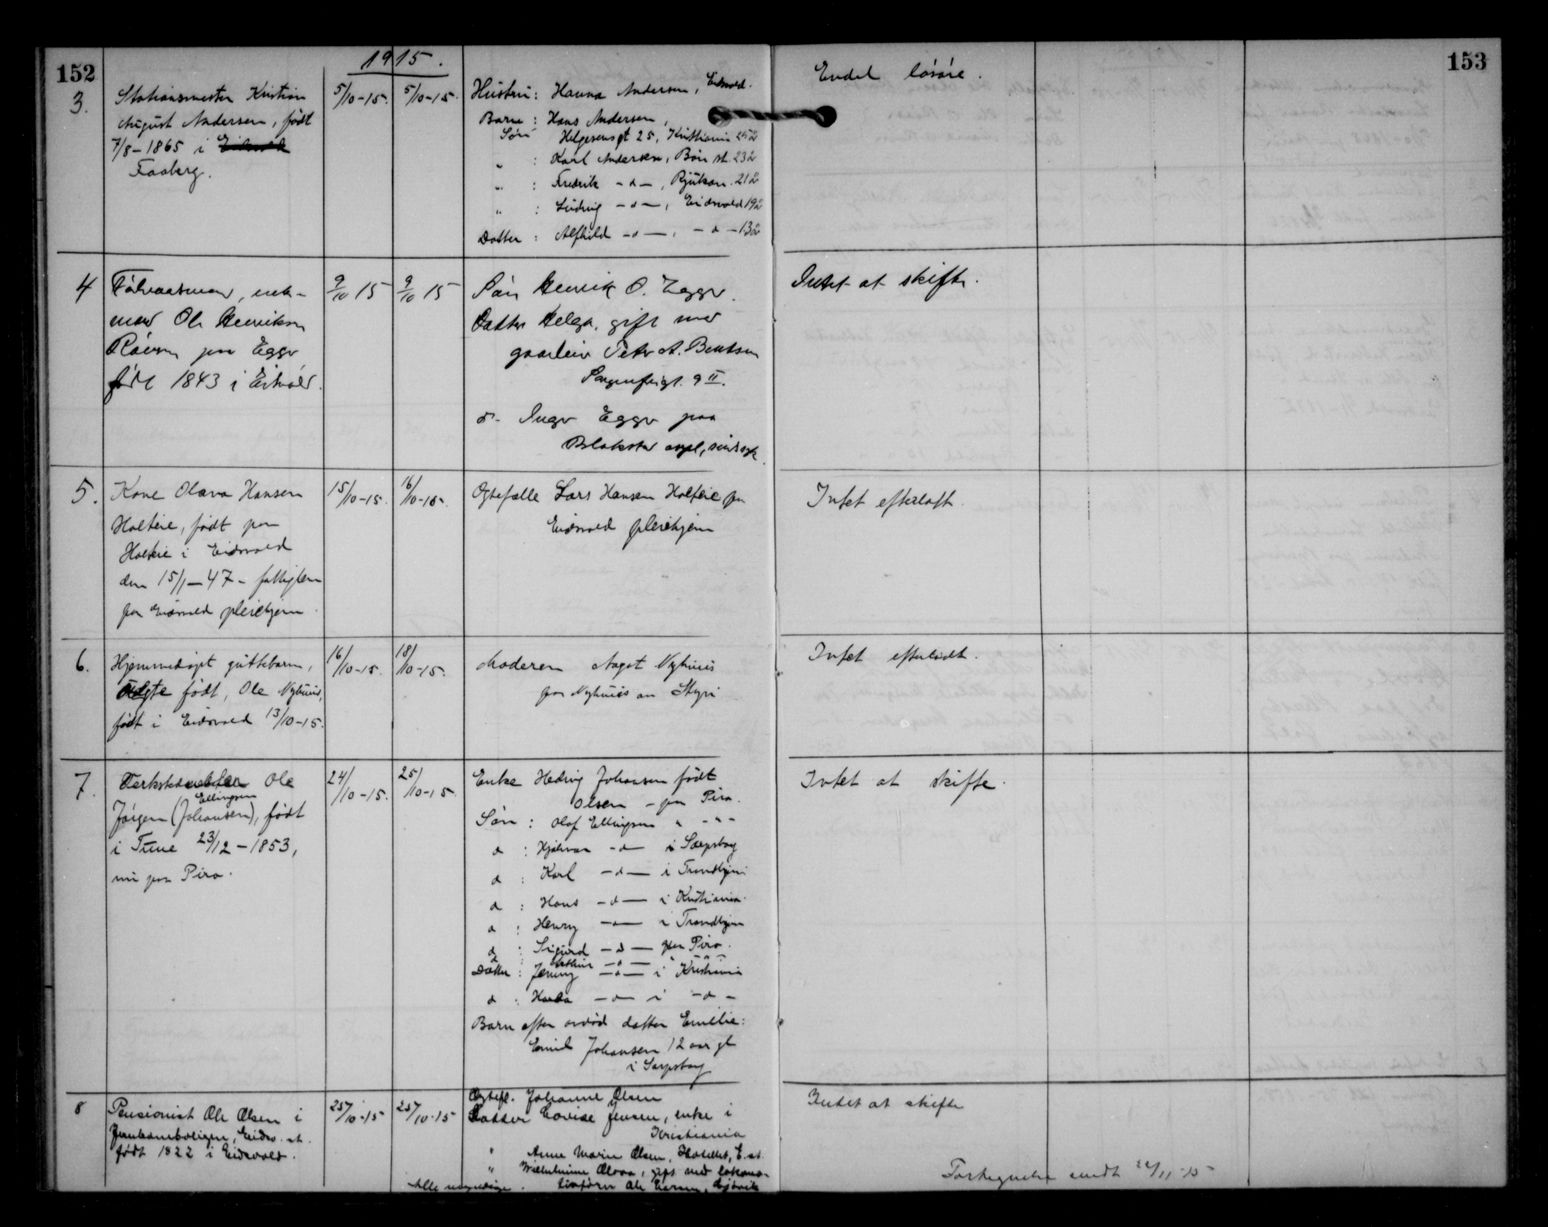 152
1915.
3.
Stationsmester Kristian
August Andersen, født
7/8-1865 i
Faaberg.
5/10-15.
5/10-15.
Hustru: Hanna Andersen, Eidsvold.
Barn: Hans Andersen,
Søn Helgesensgt 25, Kristiania 25 2
" : Karl Andersen, Bøn st. 23 2
" : Fredrik -d-, Rjukan. 21 2
" : Ludvig -d-, Eidsvold 19 2
Datter : Alfhild -d-, -d- 13 2
4
Ole Henriksen
Røisen paa Egge
født 1843 i Eidsvold.
9/10 15
9/10 15
Søn Henrik O. Egge.
Datter Helga, gift med
Peter A. Bentsen
9 II.
d- Inger Egge paa
Blakstad asyl, sindssyk.
5.
Kone Olava Hansen
Holteie, født paa
Holteie i Eidsvold
den 15/1-47- fattiglem
paa Eidsvold pleiehjem.
15/10-15.
16/10-15.
Ægtefælle Lars Hansen Holteie paa
Eidsvold pleiehjem
6.
Hjemmedøpt guttebarn,
født, Ole Nyhuus,
født i Eidsvold 13/10-15.
16/10-15.
18/10-15.
Moderen Aagot Nyhuus
paa Nyhuus an Styri
7.
Ole
Ellingsen
Jørgen (Johansen), født
i Tune 23/12-1853,
nu paa Piro.
24/10-15.
25/10-15.
Enke Hedvig Johansen født
Olsen - paa Piro.
Søn : Olaf Ellingsen " - " -
d : Hjalmar -d- i Sarpsborg
d : Karl -d- i Trondhjem
d : Hans -d- i Kristiania
d : Henry -d- i Trondhjem
d : Sigurd -d- paa Piro.
Arthur -d- " " "
Datter : Jenny -d- i Kristiania
d : Hulda -d- i -d-
Barn efter avdød datter Emilie:
Emil Johansen 12 aar gl
i Sarpsborg
8
Pensionist Ole Olsen i
Jernbaneboligen, Eidsv. st.
født 1822 i Eidsvold.
25/10-15
25/10-15
Ægtef. Johanne Olsen
Datter Lovise Jensen, enke i
Kristiania
" Anne Marie Olsen, E. st.
" Wilhelmine Olava, gift med lokomo-
tivfører Ole
Alle myndige.
153
Endel løsøre.
Intet at skifte.
Intet efterladt.
Intet efterladt.
Intet at skifte.
Intet at skifte
Fortegnelse sendt 22/11-15